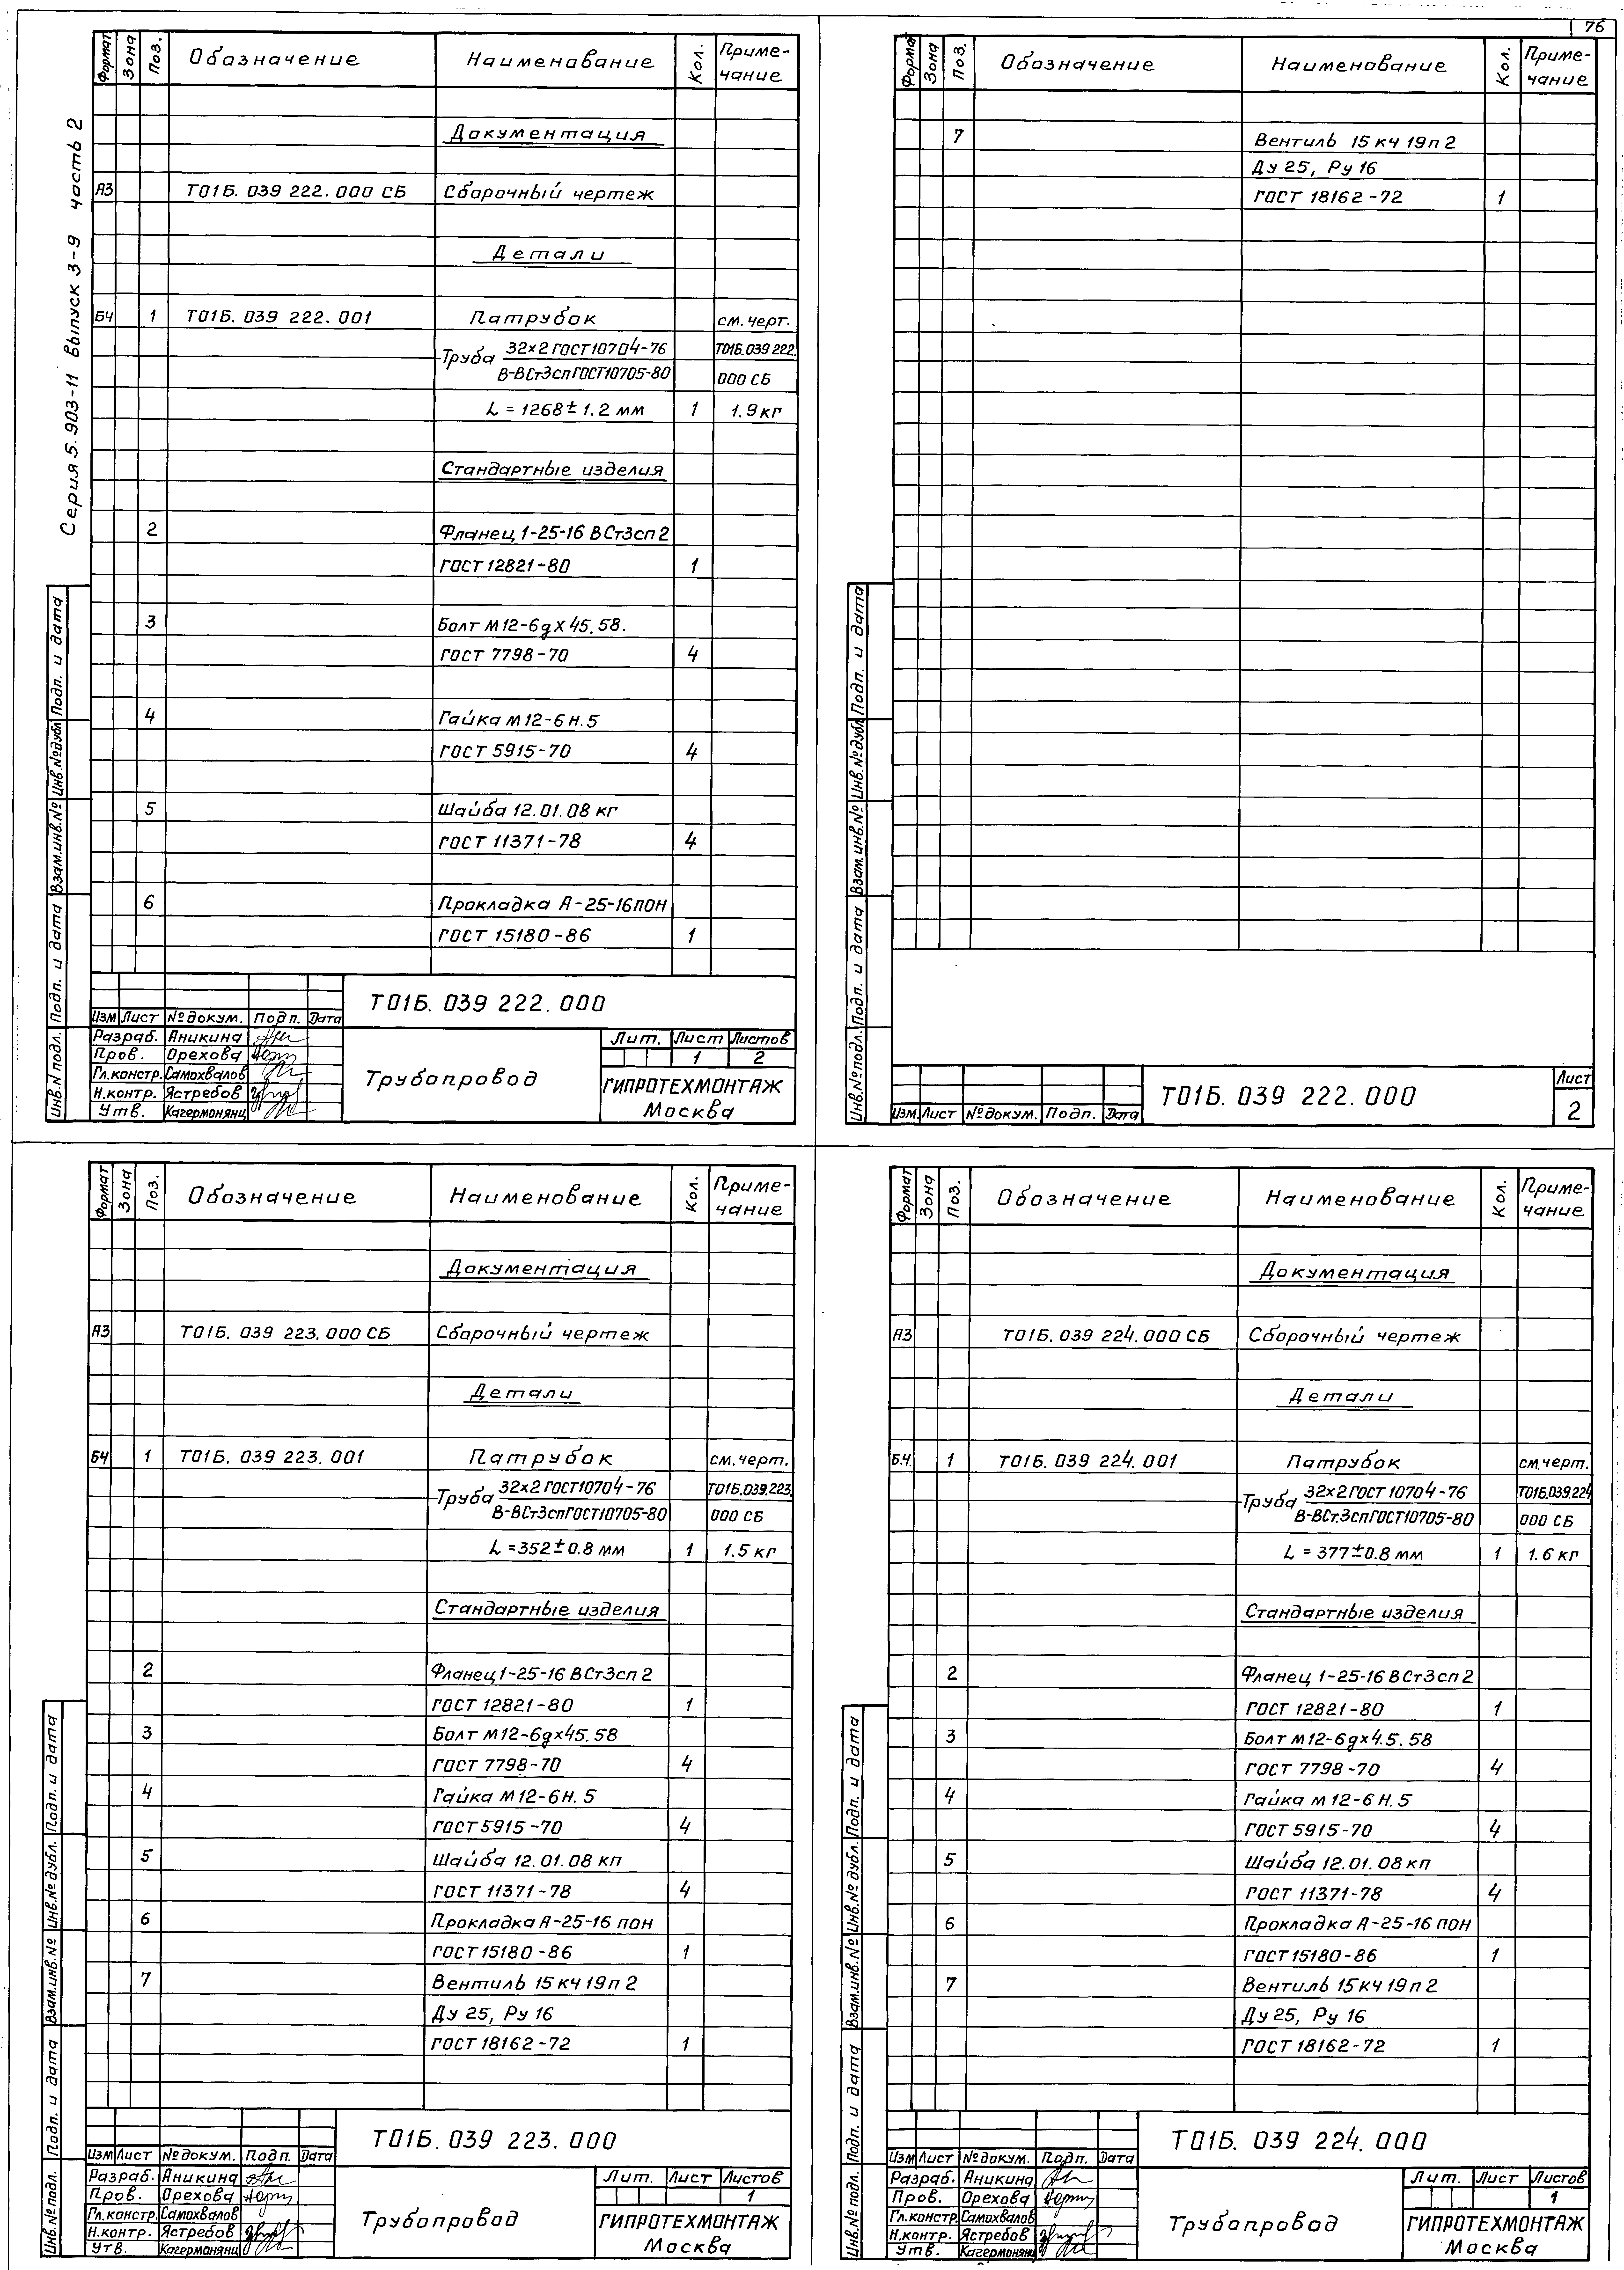 76
Серия 5.903-11 выпуск 3-9 часть 2
Формат Зона Поз. Обозначение Наименование Кол. Приме-
чание
Документация
А3 Т01Б. 039 222.000 СБ Сборочный чертеж
Детали
БЧ 1 Т01Б. 039 222.001 Патрубок см. черт.
Труба 32×2 ГОСТ 10704-76 Т01Б.039 222.
В-ВСт3сп ГОСТ10705-80 000 СБ
L = 1268 ± 1.2 мм 1 1.9 кг
Стандартные изделия
2 Фланец 1-25-16 ВСт3сп 2
ГОСТ 12821-80 1
3 Болт М12-6g×45.58.
ГОСТ 7798-70 4
4 Гайка М 12-6Н.5
ГОСТ 5915-70 4
5 Шайба 12.01.08 кг
ГОСТ 11371-78 4
6 Прокладка А-25-16ПОН
ГОСТ 15180-86 1
Инв.N подл. Подп. и дата Взам.инв.№ Инв.№дубл Подп. и дата
Т01Б. 039 222.000
Изм Лист № докум. Подп. Дата
Разраб. Аникина
Пров. Орехова
Гл.констр. Самохвалов
Н.контр. Ястребов
Утв. Кагермонянц
Трубопровод
Лит. Лист Листов
1 2
ГИПРОТЕХМОНТАЖ
Москва
Формат Зона Поз. Обозначение Наименование Кол. Приме-
чание
7 Вентиль 15 кч 19п 2
Ду 25, Ру 16
ГОСТ 18162-72 1
Инв.№ подл. Подп. и дата Взам.инв.№ Инв.№дубл Подп. и дата
Изм. Лист № докум. Подп. Дата
Т01Б. 039 222.000
Лист
2
Формат Зона Поз. Обозначение Наименование Кол. Приме-
чание
Документация
А3 Т01Б. 039 223.000 СБ Сборочный чертеж
Детали
БЧ 1 Т01Б. 039 223.001 Патрубок см. черт.
Труба 32×2 ГОСТ10704-76 Т01Б.039.223
В-ВСт3сп ГОСТ10705-80 000 СБ
L = 352 ± 0.8 мм 1 1.5 кг
Стандартные изделия
2 Фланец 1-25-16 ВСт3сп 2
ГОСТ 12821-80 1
3 Болт М12-6g×45.58
ГОСТ 7798-70 4
4 Гайка М 12-6Н. 5
ГОСТ 5915-70 4
5 Шайба 12.01.08 кп
ГОСТ 11371-78 4
6 Прокладка А-25-16 ПОН
ГОСТ 15180-86 1
7 Вентиль 15 кч 19п 2
Ду 25, Ру 16
ГОСТ 18162-72 1
Инв.№ подл. Подп. и дата Взам.инв.№ Инв.№ дубл. Подп. и дата
Т01Б. 039 223.000
Изм Лист № докум. Подп. Дата
Разраб. Аникина
Пров. Орехова
Гл.констр. Самохвалов
Н.контр. Ястребов
Утв. Кагермонянц
Трубопровод
Лит. Лист Листов
1
ГИПРОТЕХМОНТАЖ
Москва
Формат Зона Поз. Обозначение Наименование Кол. Приме-
чание
Документация
А3 Т01Б. 039 224.000 СБ Сборочный чертеж
Детали
Б.Ч. 1 Т01Б. 039 224.001 Патрубок см.черт.
Труба 32×2 ГОСТ 10704-76 Т01Б.039.224
В-ВСт.3сп ГОСТ10705-80 000 СБ
L = 377 ± 0.8 мм 1 1.6 кг
Стандартные изделия
2 Фланец 1-25-16 ВСт3сп 2
ГОСТ 12821-80 1
3 Болт М12-6g×4.5. 58
ГОСТ 7798-70 4
4 Гайка М 12-6Н.5
ГОСТ 5915-70 4
5 Шайба 12.01.08 кп
ГОСТ 11371-78 4
6 Прокладка А-25-16 ПОН
ГОСТ 15180-86 1
7 Вентиль 15 кч 19п 2
Ду 25, Ру 16
ГОСТ 18162-72 1
Инв.№ подл. Подп. и дата Взам.инв.№ Инв.№ дубл. Подп. и дата
Т01Б. 039 224.000
Изм Лист № докум. Подп. Дата
Разраб. Аникина
Пров. Орехова
Гл.констр. Самохвалов
Н.контр. Ястребов
Утв. Кагермонянц
Трубопровод
Лит. Лист Листов
1
ГИПРОТЕХМОНТАЖ
Москва